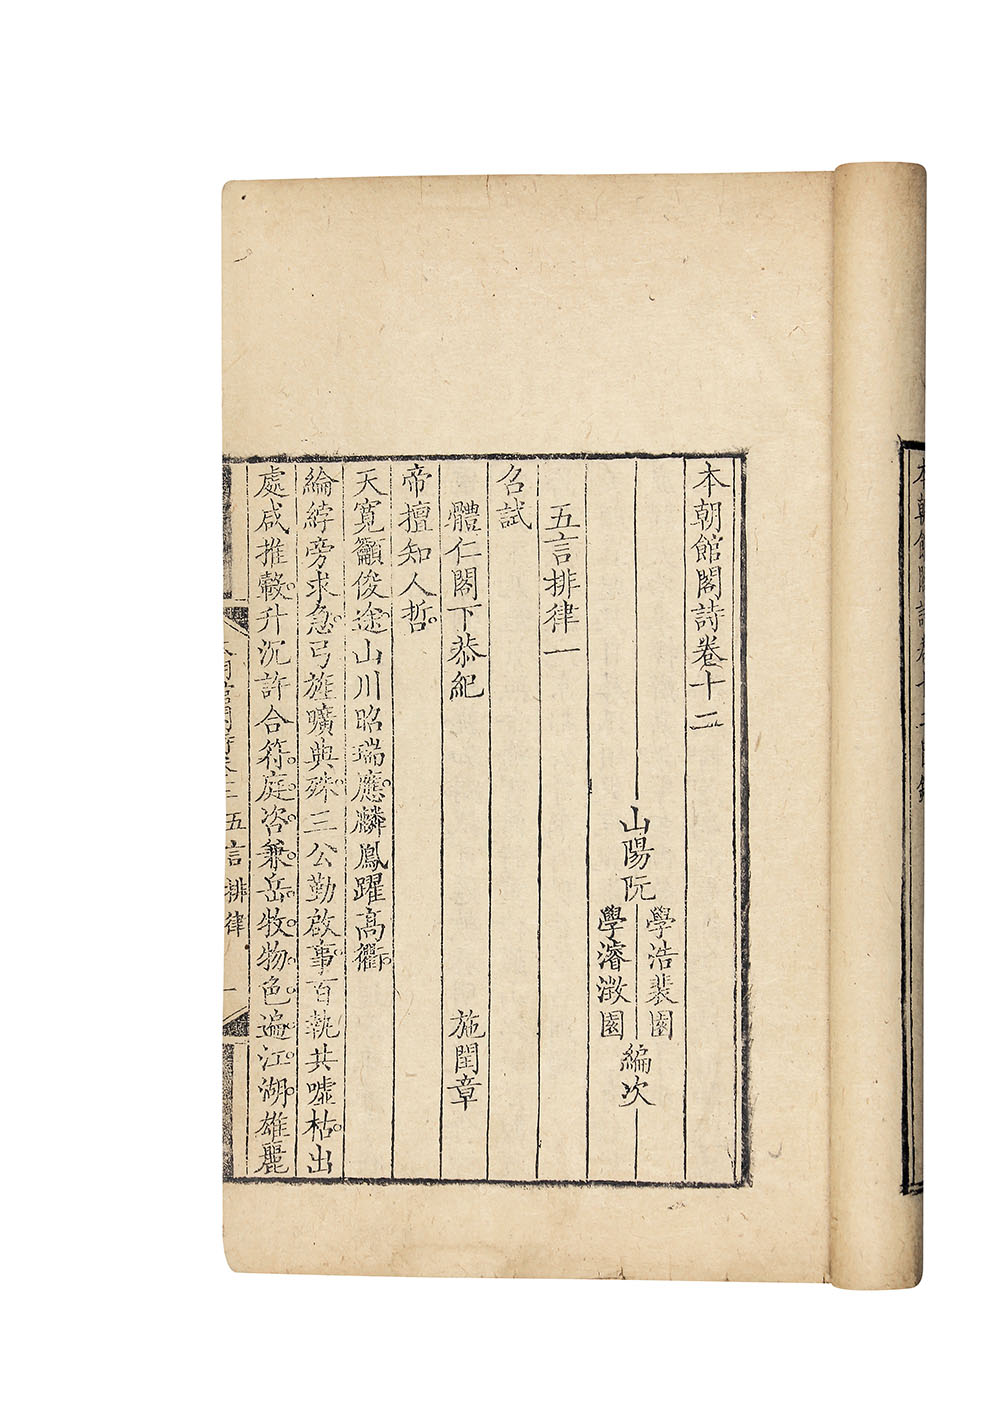 本朝館閣詩卷十二
山陽阮
學浩裴園
學濬澂園
編次
五言排律一
召試
體仁閣下恭紀　施閏章
帝擅知人哲。
天寬籲俊途。山川昭瑞應。麟鳳躍高衢。
綸綍旁求急。弓旌曠典殊。三公勤啟事。百執共噓枯。出
處咸推轂。升沉許合符。庭咨兼岳牧。物色遍江湖。雄麗
五言排律　一